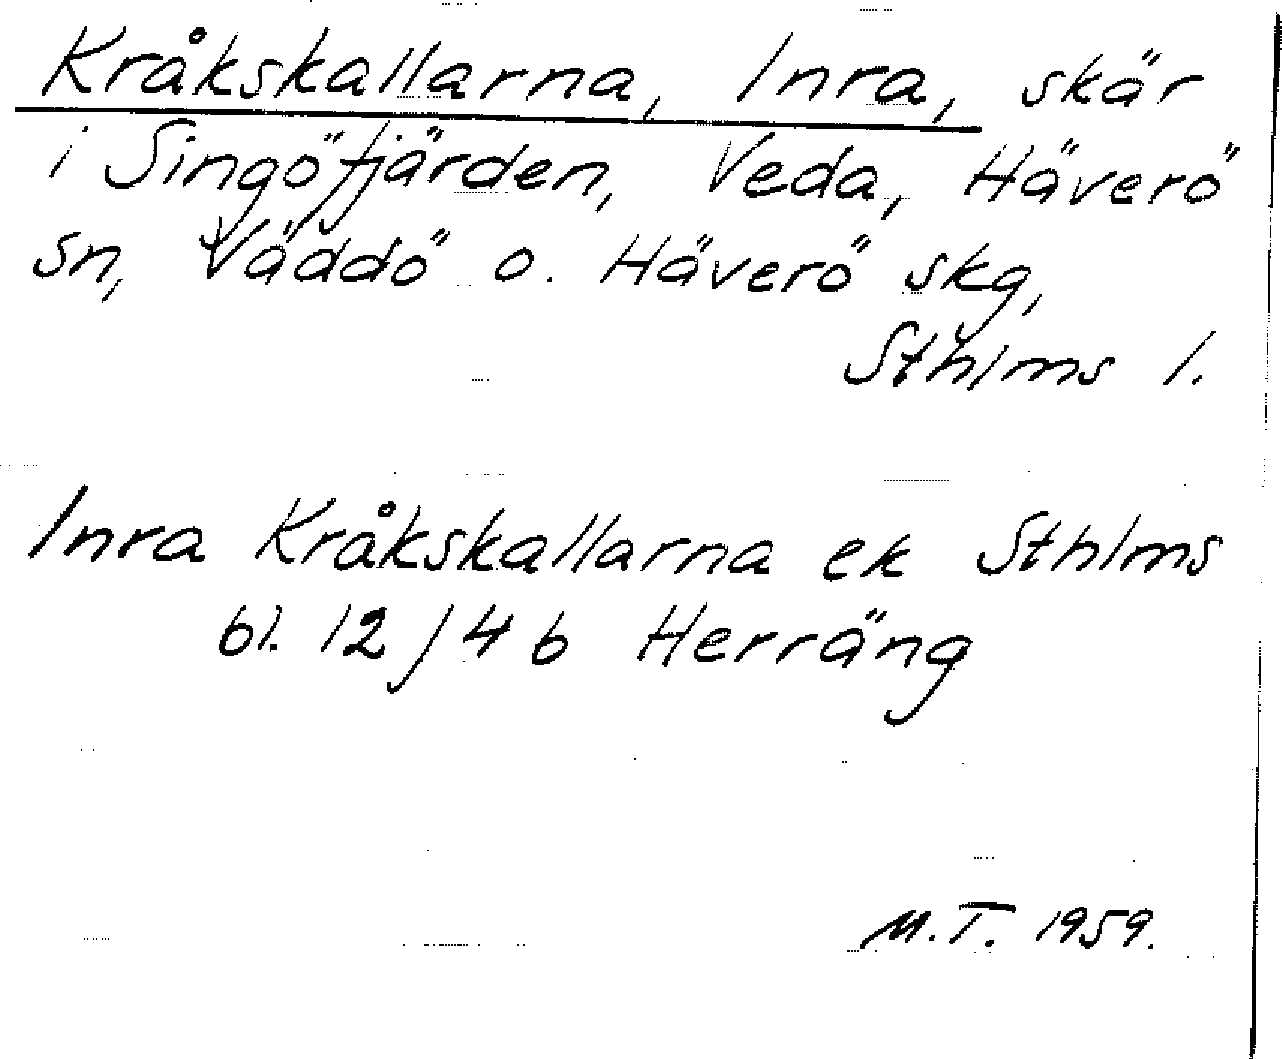 Kråkskallarna, Inra, skär
i Singöfjärden, Veda, Häverö
sn, Väddö o. Häverö skg,
Sthlms l.
Inra Kråkskallarna ek Sthlms
bl. 12/4 b Herräng
M.T. 1959.